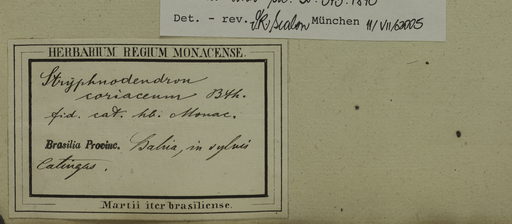 Det. - rev. München 11/VII/2005
HERBARIUM REGIUM MONACENSE.
Stryphnodendron
coriaceum Bth.
fid. cat. hb. Monac.
Brasilia Provinc. Bahia, in sylvis
Catingas.
Martii iter brasiliense.